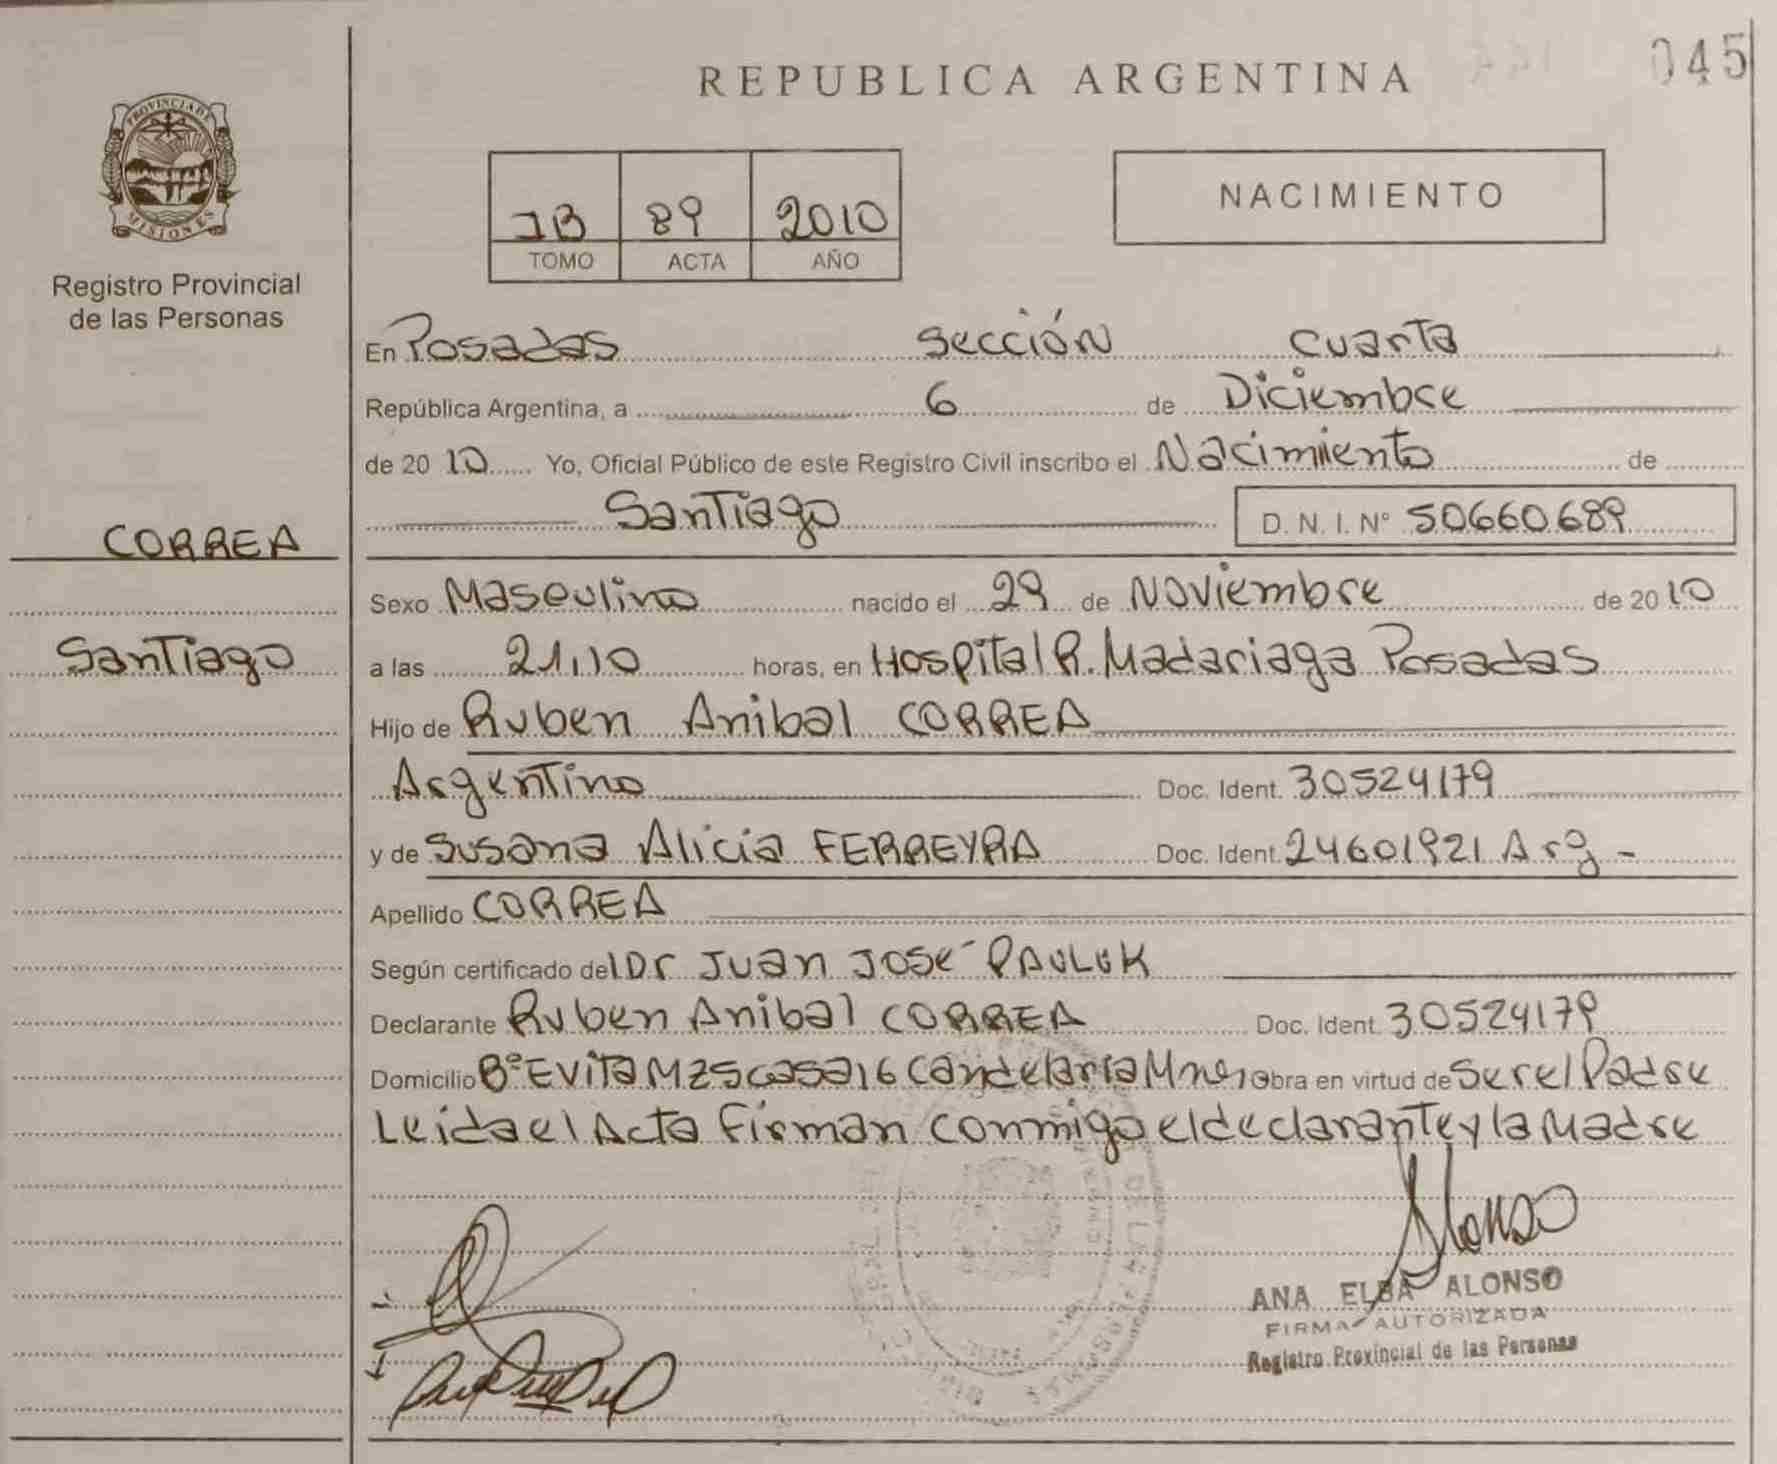 REPUBLICA ARGENTINA
045
PROVINCIA DE
MISIONES
Registro Provincial
de las Personas
1B 89 2010
TOMO ACTA AÑO
NACIMIENTO
En Posadas Sección Cuarta
República Argentina, a 6 de Diciembre
de 20 10 Yo, Oficial Público de este Registro Civil inscribo el Nacimiento de
Santiago D. N. I. Nº 50660689
CORREA
Santiago
Sexo Masculino nacido el 29 de Noviembre de 20 10
a las 21,10 horas, en Hospital R. Madariaga Posadas
Hijo de Ruben Anibal CORREA
Argentino Doc. Ident. 30524179
y de Susana Alicia FERREYRA Doc. Ident. 24601921 Arg -
Apellido CORREA
Según certificado del Dr Juan José PAULUK
Declarante Ruben Anibal CORREA Doc. Ident. 30524179
Domicilio Bº Evita Mz5 casa16 Candelaria Mnes obra en virtud de ser el Padre
Leida el Acta Firman conmigo el declarante y la Madre
Alonso
ANA ELBA ALONSO
FIRMA AUTORIZADA
Registro Provincial de las Personas